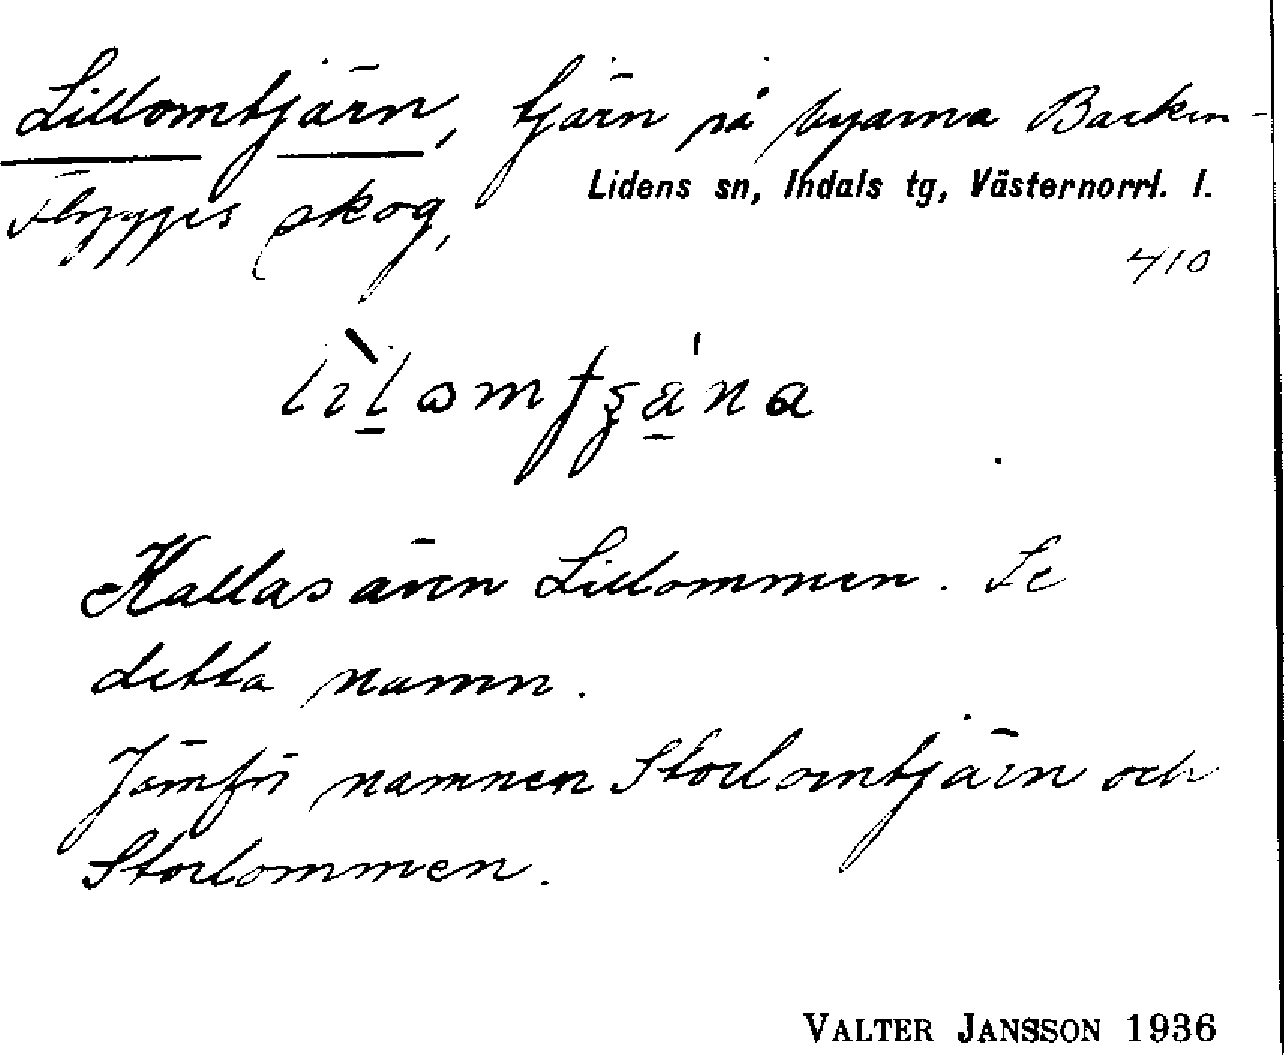 Lillomtjärn, tjärn på byarna Backen-
Flygges skog,
Lidens sn, Indals tg, Västernorrl. l.
410
Kallas även Lillommen. Se
detta namn.
Jämför namnen Storlomtjärn och
Storlommen.
VALTER JANSSON 1936